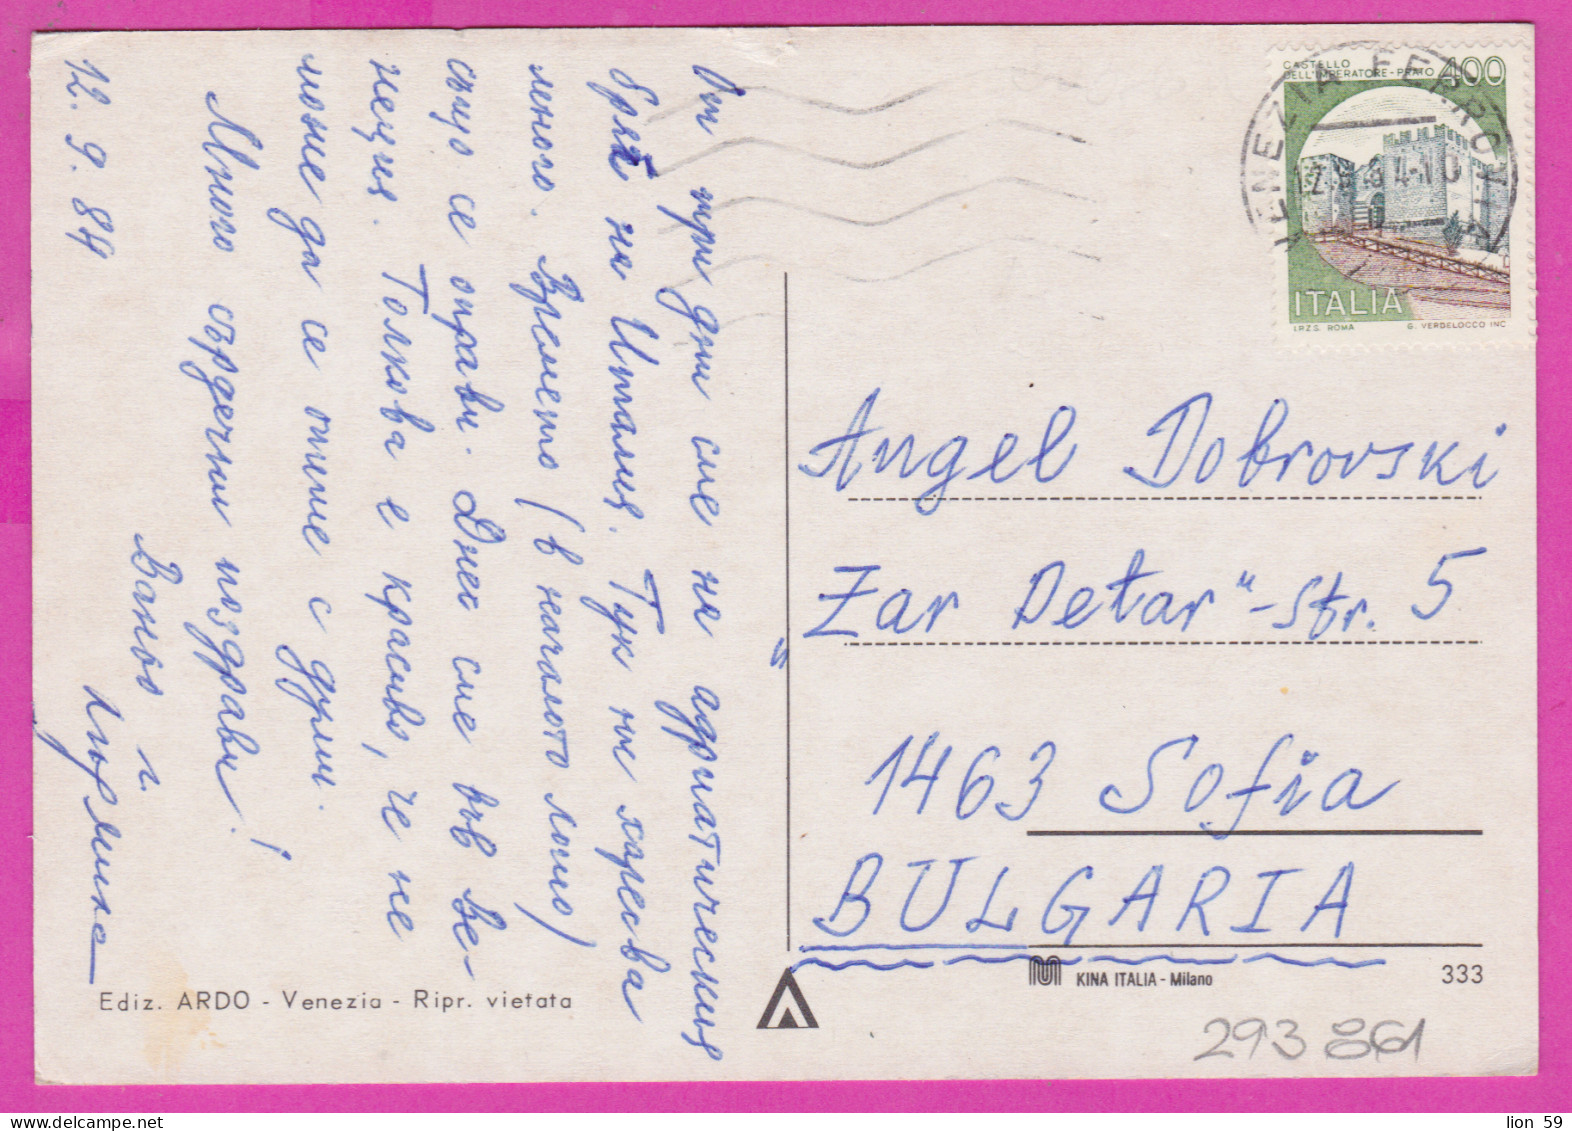 От три дни сме на адриатическия
бряг на Италия. Тук ни харесва
много. Времето (в началото лошо)
също се оправи. Днес сме във Ве-
неция. Толкова е красиво, че не
може да се опише с думи.
Много сърдечни поздрави!
Ваньо и
12. 9. 84
Ediz. ARDO - Venezia - Ripr. vietata
CASTELLO
DELL'IMPERATORE - PRATO 400
ITALIA
I.P.Z.S. ROMA G. VERDELOCCO INC.
VENEZIA FERROVIA
Angel Dobrovski
"Zar Petar"-Str. 5
1463 Sofia
BULGARIA
KINA ITALIA - Milano
333
293 861
lion 59